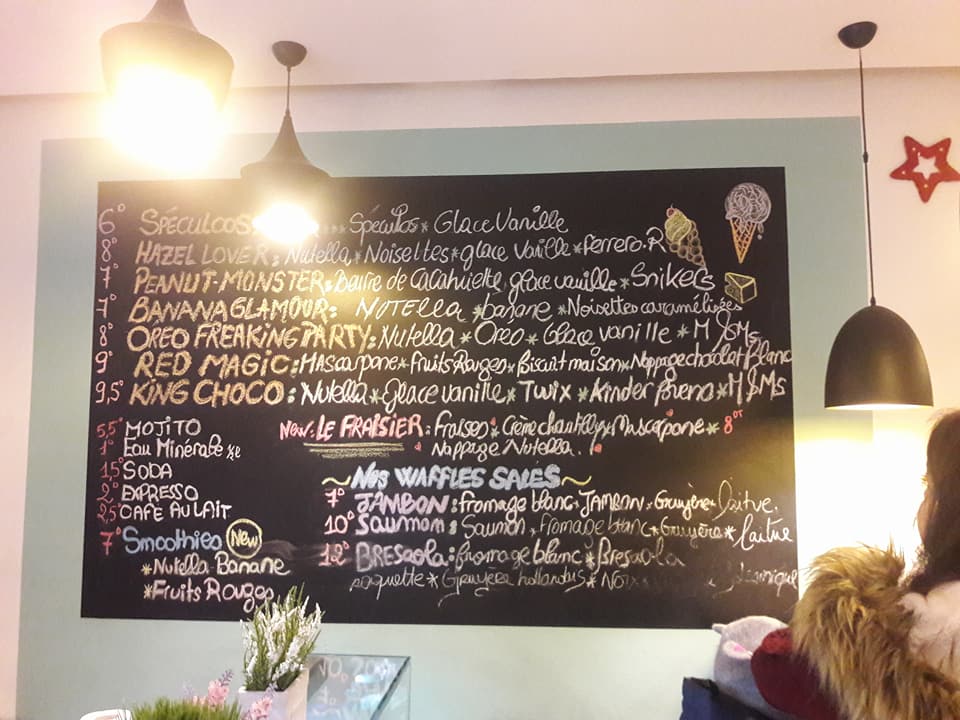 6° SPÉCULOOS Spéculos * Glace Vanille
8° HAZEL LOVER : Nutella * Noisettes * glace Vanille * ferrero.R
7° PEANUT-MONSTER : Beurre de Cacahuette, glace vanille * Snikers
7° BANANA GLAMOUR : NUTELLA * banane * Noisettes caramélisées
8° OREO FREAKING PARTY : Nutella * Oréo * Glace vanille * M&Ms
9° RED MAGIC : Mascarpone * fruits Rouges * Biscuit maison * Nappage chocolat blanc
9,5° KING CHOCO : Nutella * Glace vanille * Twix * Kinder Bueno * M&Ms
New : LE FRAISIER : Fraises * Crème chantilly * Mascarpone * 8°
Nappage Nutella .
5,5° MOJITO
1° Eau Minérale
1,5° SODA
2° EXPRESSO
2,5° CAFÉ AU LAIT
7° Smoothies New
* Nutella-Banane
* Fruits Rouges
~ Nos WAFFLES SALÉS ~
7° JAMBON : fromage blanc * JAMBON * Gruyère * laitue.
10° Saumon : Saumon * fromage blanc * Gruyère * laitue
12° BRESAOLA : fromage blanc * Bresaola
roquette * Gruyère hollandais * Noix